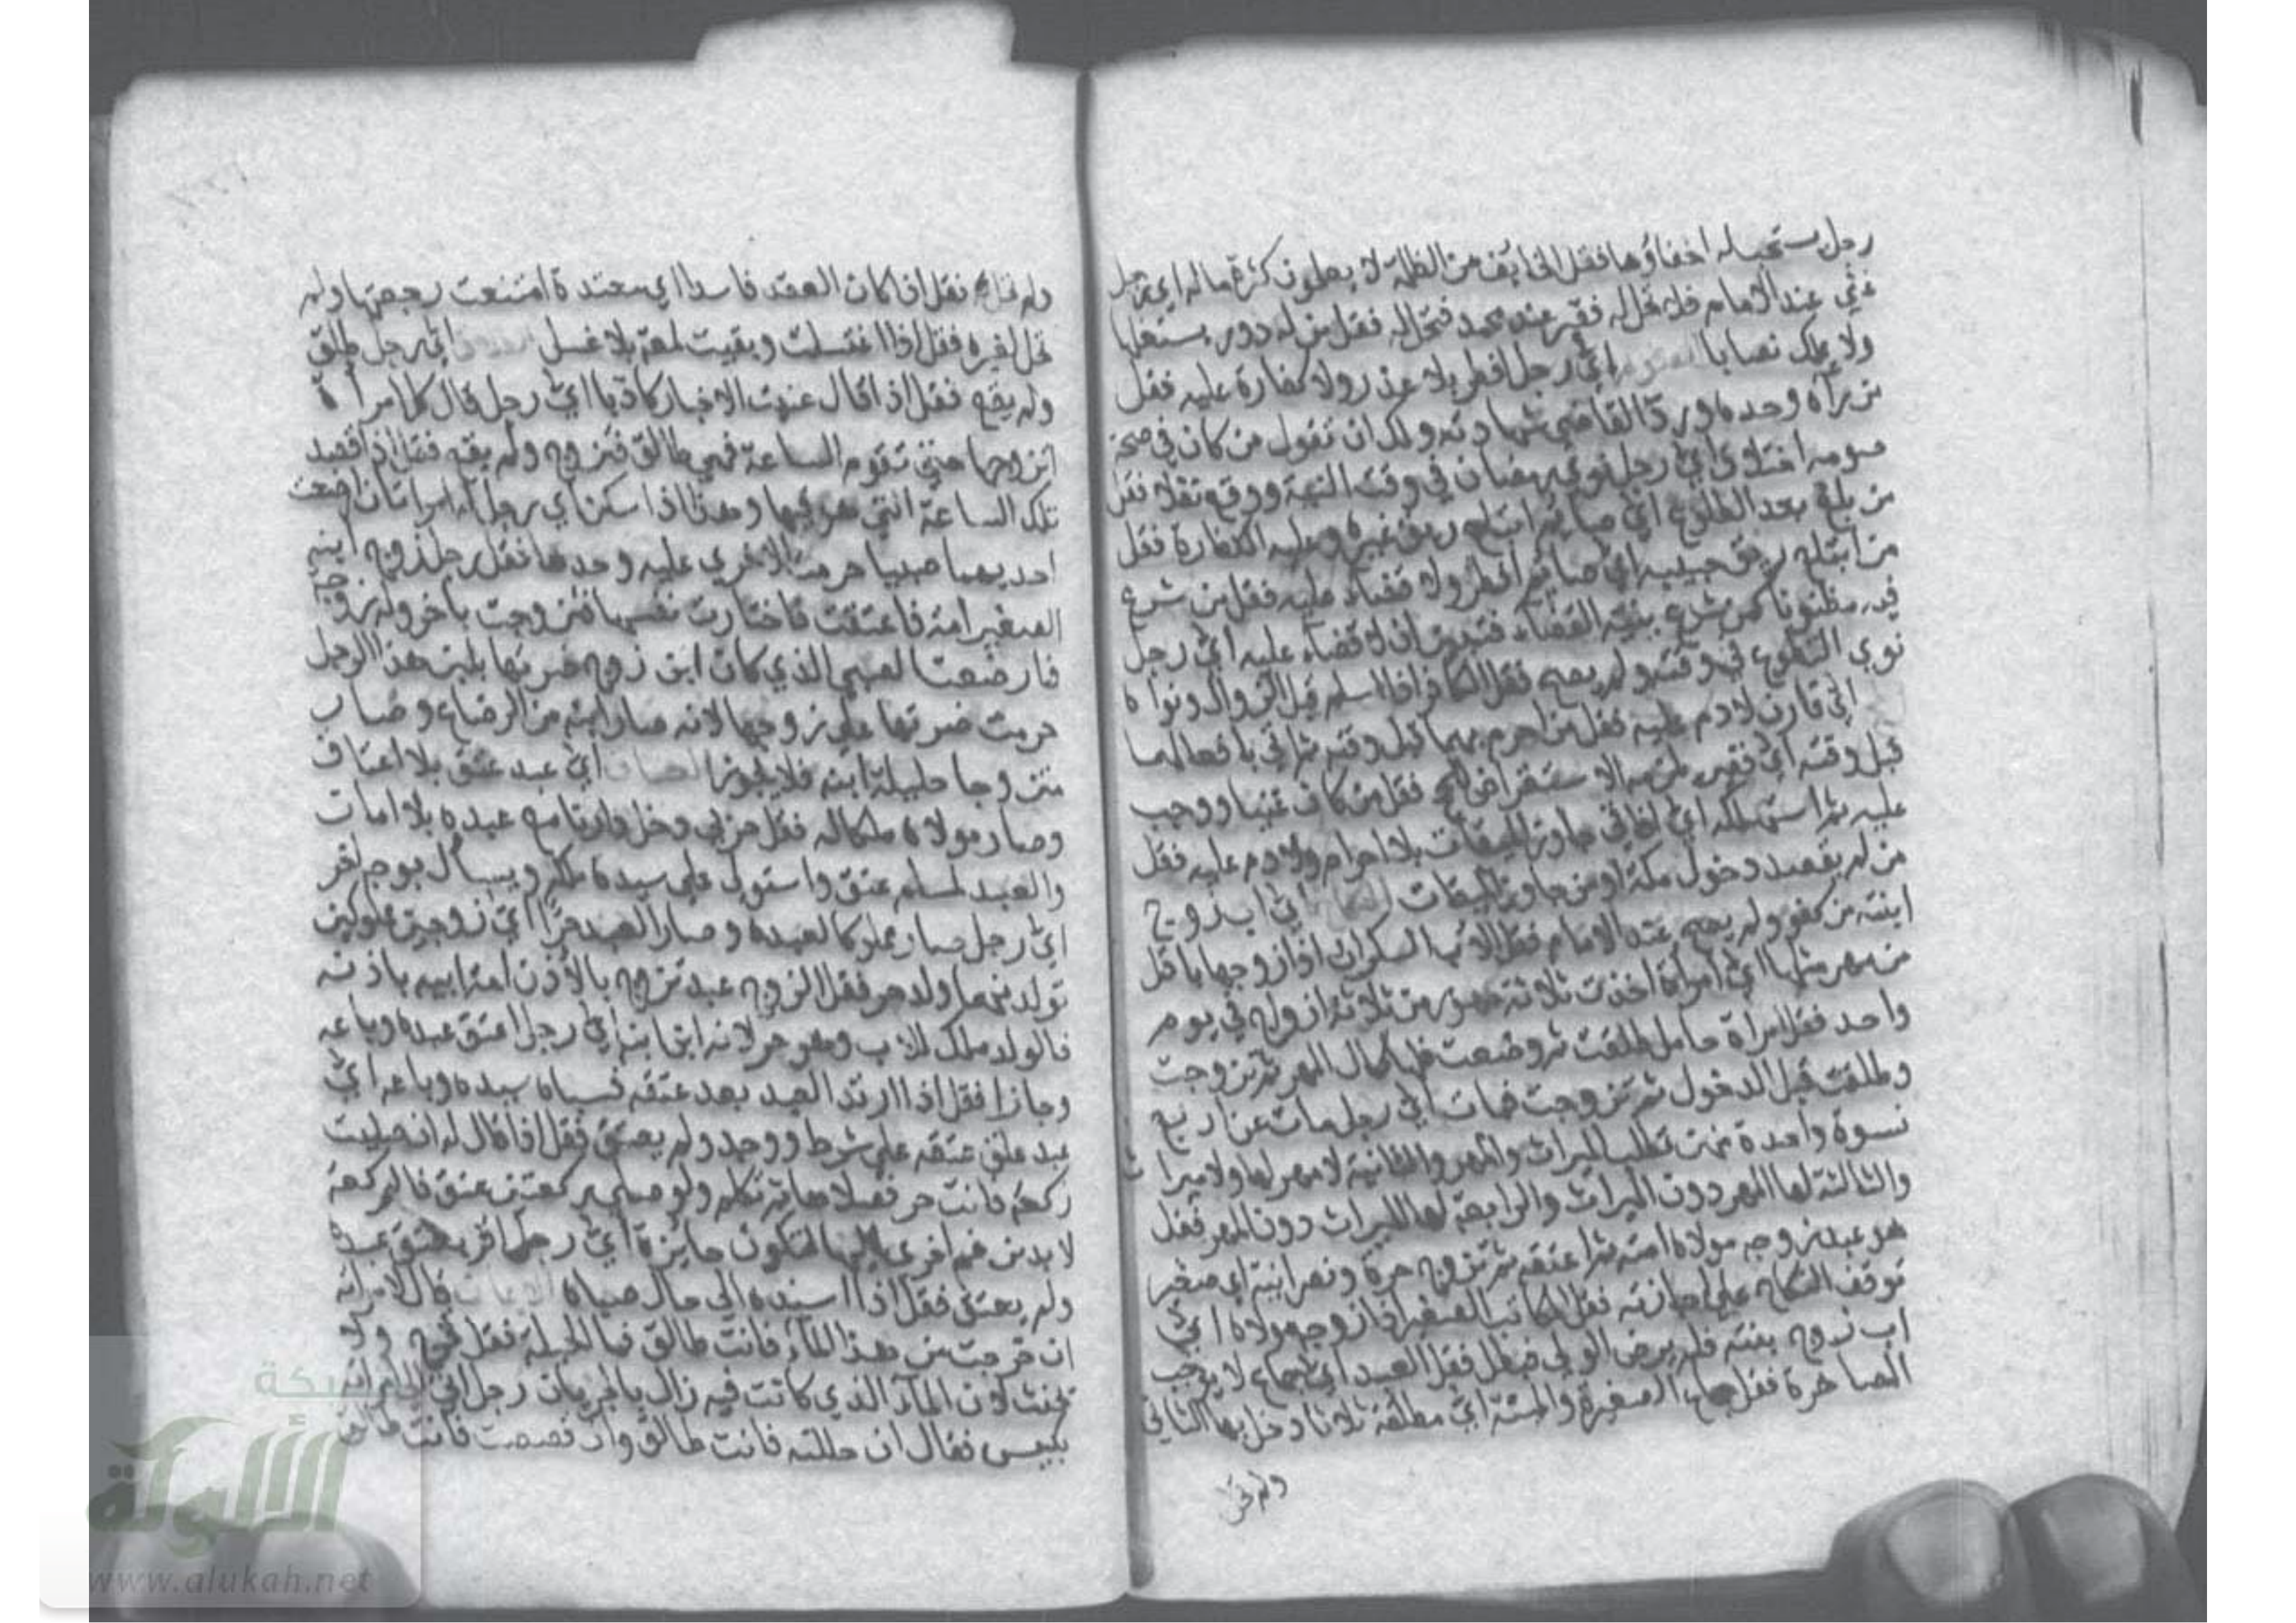 رجل يستحب له اخفاؤها فقل الخايف من الظلمة لا يعلمون كثرة ماله اي رجل
غني عند الامام فلا تحل له فقير عند محمد فتحل له فقل من له دور يستغلها
ولا يملك نصابا الصوم اي رجل افطر بلا عذر ولا كفارة عليه فقل
من رآه وحده ورد القاضي شهادته ولك ان تقول من كان في صحة
صومه اختلاف اي رجل نوى رمضان في وقت النية ووقع نفلا فقل
من بلغ بعد الطلوع اي صايم ابتلع ريق غيره وعليه الكفارة فقل
من ابتلع ريق حبيبه اي صايم افطر ولا قضاء عليه فقل من شرع
فيه مظنونا كمن شرع بنية القضاء فتبين ان لا قضاء عليه اي رجل
نوى التطوع في وقته ولم يصح فقل الكافر اذا اسلم قبل الزوال ونواه
اي قارن لا دم عليه فقل من احرم بهما قبل وقته ثم اتى بافعالهما
قبل وقته اي فقير يلزمه الاستقراض للحج فقل من كان غنيا ووجب
عليه ثم استهلكه اي افاقي جاوز الميقات بلا احرام ولا دم عليه فقل
من لم يقصد دخول مكة اومن جاوز الميقات النكاح اي اب زوج
ابنته من كفو ولم يصح عند الامام فقل الاب السكران اذا زوجها باقل
من مهر مثلها اي امراة اخذت ثلاثة مهور من ثلاثة ازواج في يوم
واحد فقل امراة حامل طلقت ثم وضعت فلها كمال المهر ثم تزوجت
وطلقت قبل الدخول ثم تزوجت فمات اي رجل مات عن اربع
نسوة واحدة منهن تطلب الميراث والمهر والثانية لا مهر لها ولا ميراث
والثالثة لها المهر دون الميراث والرابعة لها الميراث دون المهر فقل
هو عبد زوجه مولاه امته ثم اعتقه ثم تزوج حرة ونصرانية اي صغير
توقف النكاح على اجازته فقل المكاتب الصغير اذا زوجه مولاه اي
اب زوج بنته فلم يرض الولي فبطل فقل العبد اي جماع لا يوجب
المصاهرة فقل جماع الصغيرة والميتة اي مطلقة ثلاثا دخل بها الثاني
ولم تحل
ولم تحل فقل اذا كان العقد فاسدا اي معتدة امتنعت رجعتها ولم
تحل لغيره فقل اذا اغتسلت وبقيت لمعة بلا غسل اي رجل طلق
ولم يقع فقل اذا قال عنيت الاخبار كاذبا اي رجل قال كل امراة
اتزوجها حتى تقوم الساعة فهي طالق فتزوج ولم يقع فقل اذا قصد
تلك الساعة التي هو فيها وهذا اذا سكن اي رجل له امراتان ارضعت
احديهما صبيا حرمت الاخرى عليه وحدها فقل رجل زوج ابنه
الصغير امة فاعتقت فاختارت نفسها فتزوجت باخر وله زوجة
فارضعت الصبي الذي كان ابن زوج ضرتها بلبن هذا الرجل
حرمت ضرتها على زوجها لانه صار ابنه من الرضاع وصار
متزوجا حليلة ابنه فلا يجوز العتاق اي عبد عتق بلا اعتاق
وصار مولاه ملكا له فقل حربي دخل دارنا مع عبده بلا امان
والعبد مسلم عتق واستولى على سيده ملكه ويسأل بوجه اخر
اي رجل صار مملوكا لعبده وصار العبد حرا اي زوجين مملوكين
تولد منهما ولد حر فقل الزوج عبد تزوج بالاذن امة ابيه باذنه
فالولد ملك للاب وهو حر لانه ابن ابنه اي رجل اعتق عبده وباعه
وجاز فقل اذا ارتد العبد بعد عتقه فسباه سيده وباعه اي
عبد علق عتقه على شرط ووجد ولم يعتق فقل اذا قال له ان صليت
ركعة فانت حر فصلاها ثم تكلم ولو صلى ركعتين عتق فالركعة
لا بد من ضم اخرى اليها لتكون جايزة اي رجل اقر بعتق عبده
ولم يعتق فقل اذا اسنده الى حال صباه الايمان قال لامراته
ان خرجت من هذا الماء فانت طالق فما الحيلة فقل تخرج ولا
تحنث لان الماء الذي كانت فيه زال بالجريان رجل اتى الى امراته
بكيس فقال ان حللته فانت طالق وان قصصته فانت طالق